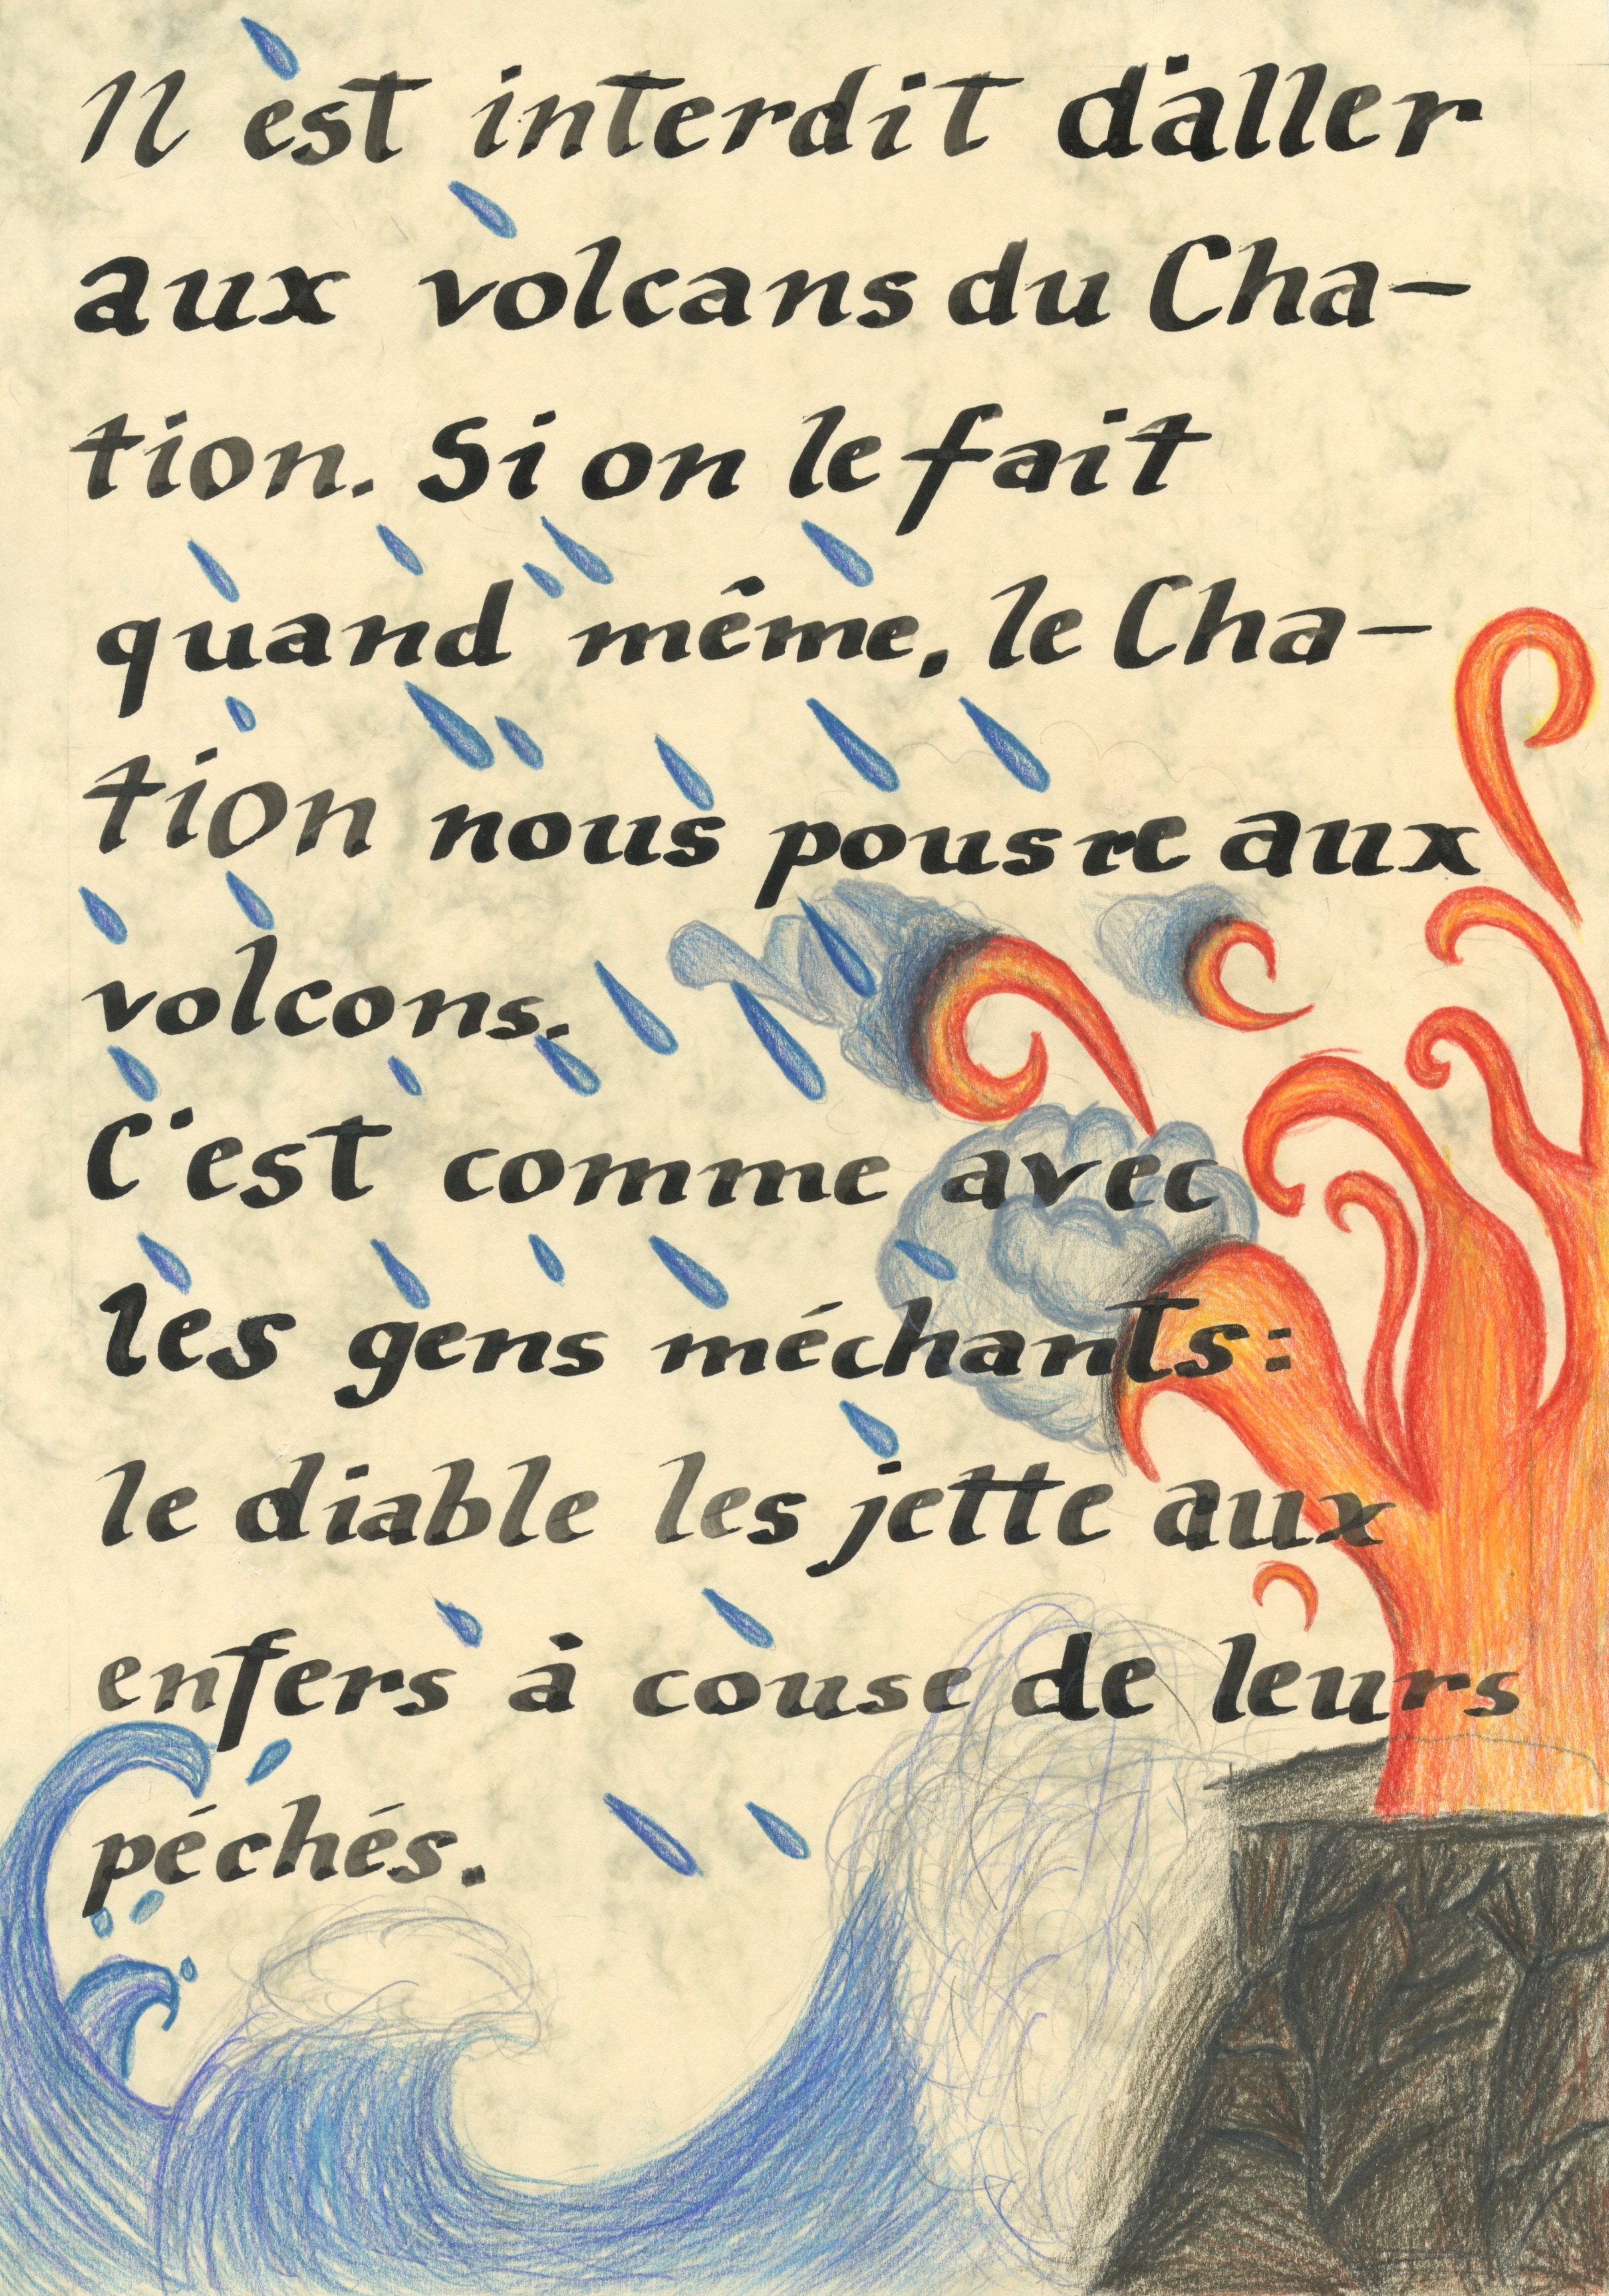 Il est interdit d'aller
aux volcans du Cha-
tion. Si on le fait
quand même, le Cha-
tion nous pousre aux
volcons.
C'est comme avec
les gens méchants:
le diable les jette aux
enfers à couse de leurs
péchés.